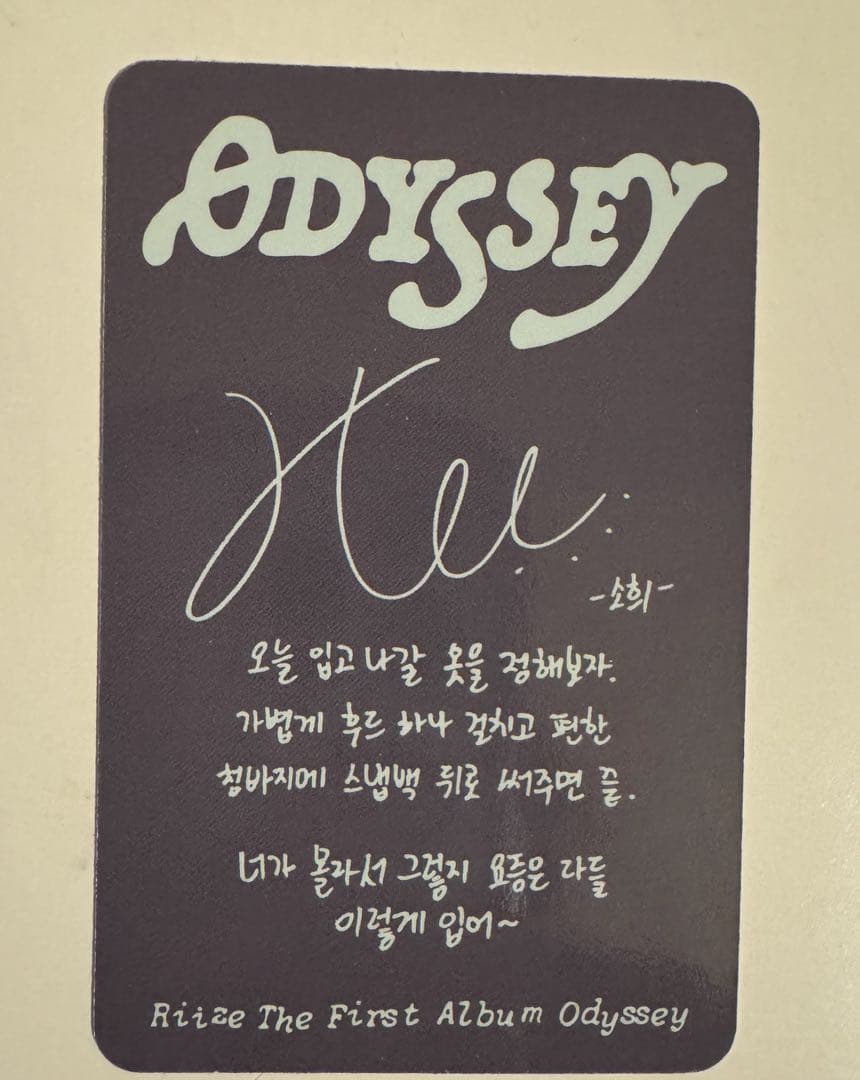 ODYSSEY
Hee
-소희-
오늘 입고 나갈 옷을 정해보자.
가볍게 후드 하나 걸치고 편한
청바지에 스냅백 뒤로 써주면 끝.
너가 몰라서 그렇지 요즘은 다들
이렇게 입어~
Riize The First Album Odyssey